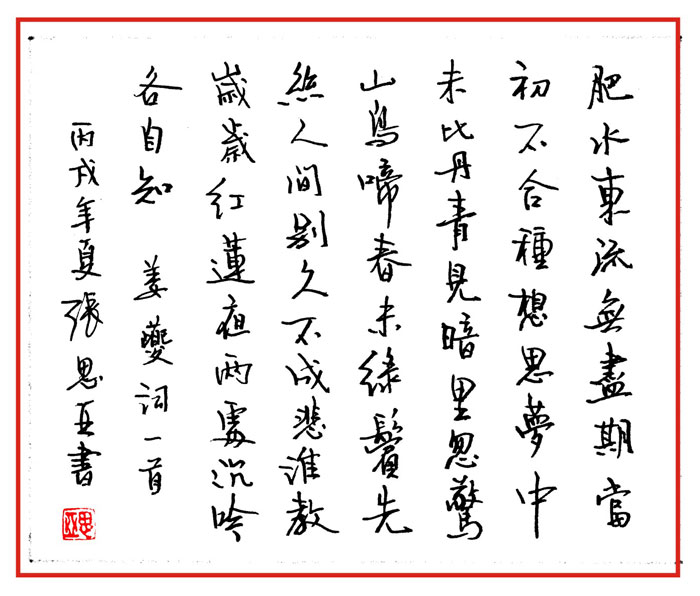 肥水東流無盡期當
初不合種想思夢中
未比丹青見暗里忽驚
山鳥啼春未綠鬢先
絲人間别久不成悲誰教
歲歲紅蓮夜兩處沉吟
各自知 姜夔詞一首
丙戌年夏張思書